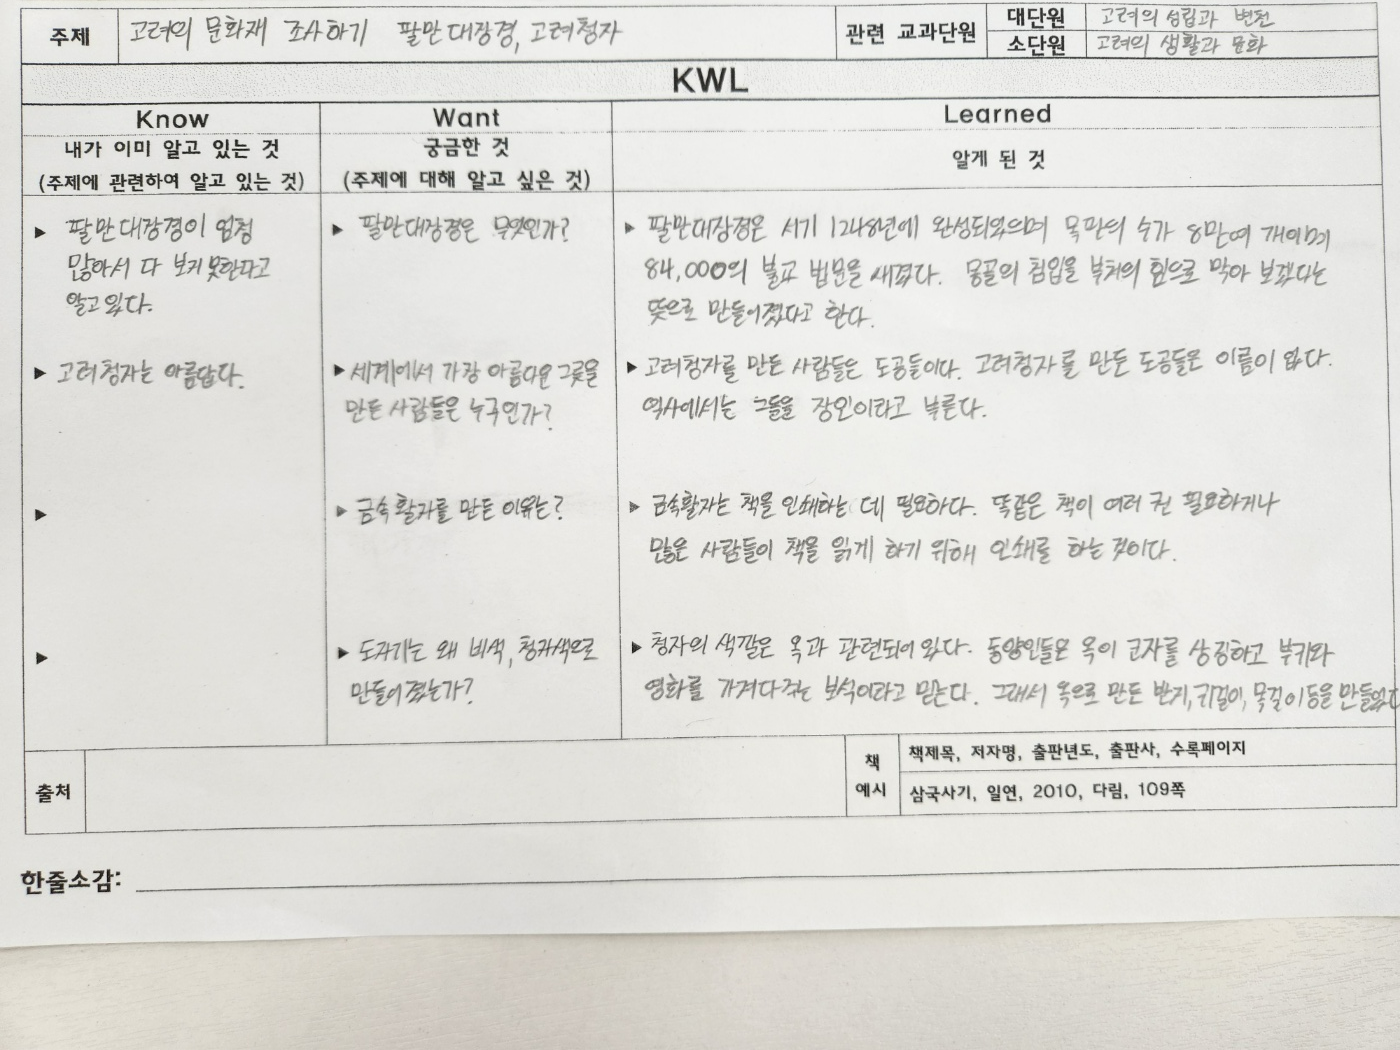 주제 고려의 문화재 조사하기 팔만대장경, 고려청자 관련 교과단원 대단원 고려의 성립과 변천
소단원 고려의 생활과 문화
KWL
Know Want Learned
내가 이미 알고 있는 것 궁금한 것 알게 된 것
(주제에 관련하여 알고 있는 것) (주제에 대해 알고 싶은 것)
▶ 팔만대장경이 엄청
많아서 다 보지 못한다고
알고 있다.
▶ 팔만대장경은 무엇인가?
▶ 팔만대장경은 서기 1248년에 완성되었으며 목판의 수가 8만여 개이며
84,000의 불교 법문을 새겼다. 몽골의 침입을 부처의 힘으로 막아 보겠다는
뜻으로 만들어졌다고 한다.
▶ 고려청자는 아름답다.
▶ 세계에서 가장 아름다운 그릇을
만든 사람들은 누구인가?
▶ 고려청자를 만든 사람들은 도공들이다. 고려청자를 만든 도공들은 이름이 없다.
역사에서는 그들을 장인이라고 부른다.
▶
▶ 금속활자를 만든 이유는?
▶ 금속활자는 책을 인쇄하는 데 필요하다. 똑같은 책이 여러 권 필요하거나
많은 사람들이 책을 읽게 하기 위해 인쇄를 하는 것이다.
▶
▶ 도자기는 왜 비색, 청자색으로
만들어 졌는가?
▶ 청자의 색깔은 옥과 관련되어 있다. 동양인들은 옥이 군자를 상징하고 부귀와
영화를 가져다주는 보석이라고 믿는다. 그래서 옥으로 만든 반지, 귀걸이, 목걸이 등을 만들었다
출처 책 예시 책제목, 저자명, 출판년도, 출판사, 수록페이지
삼국사기, 일연, 2010, 다림, 109쪽
한줄소감: